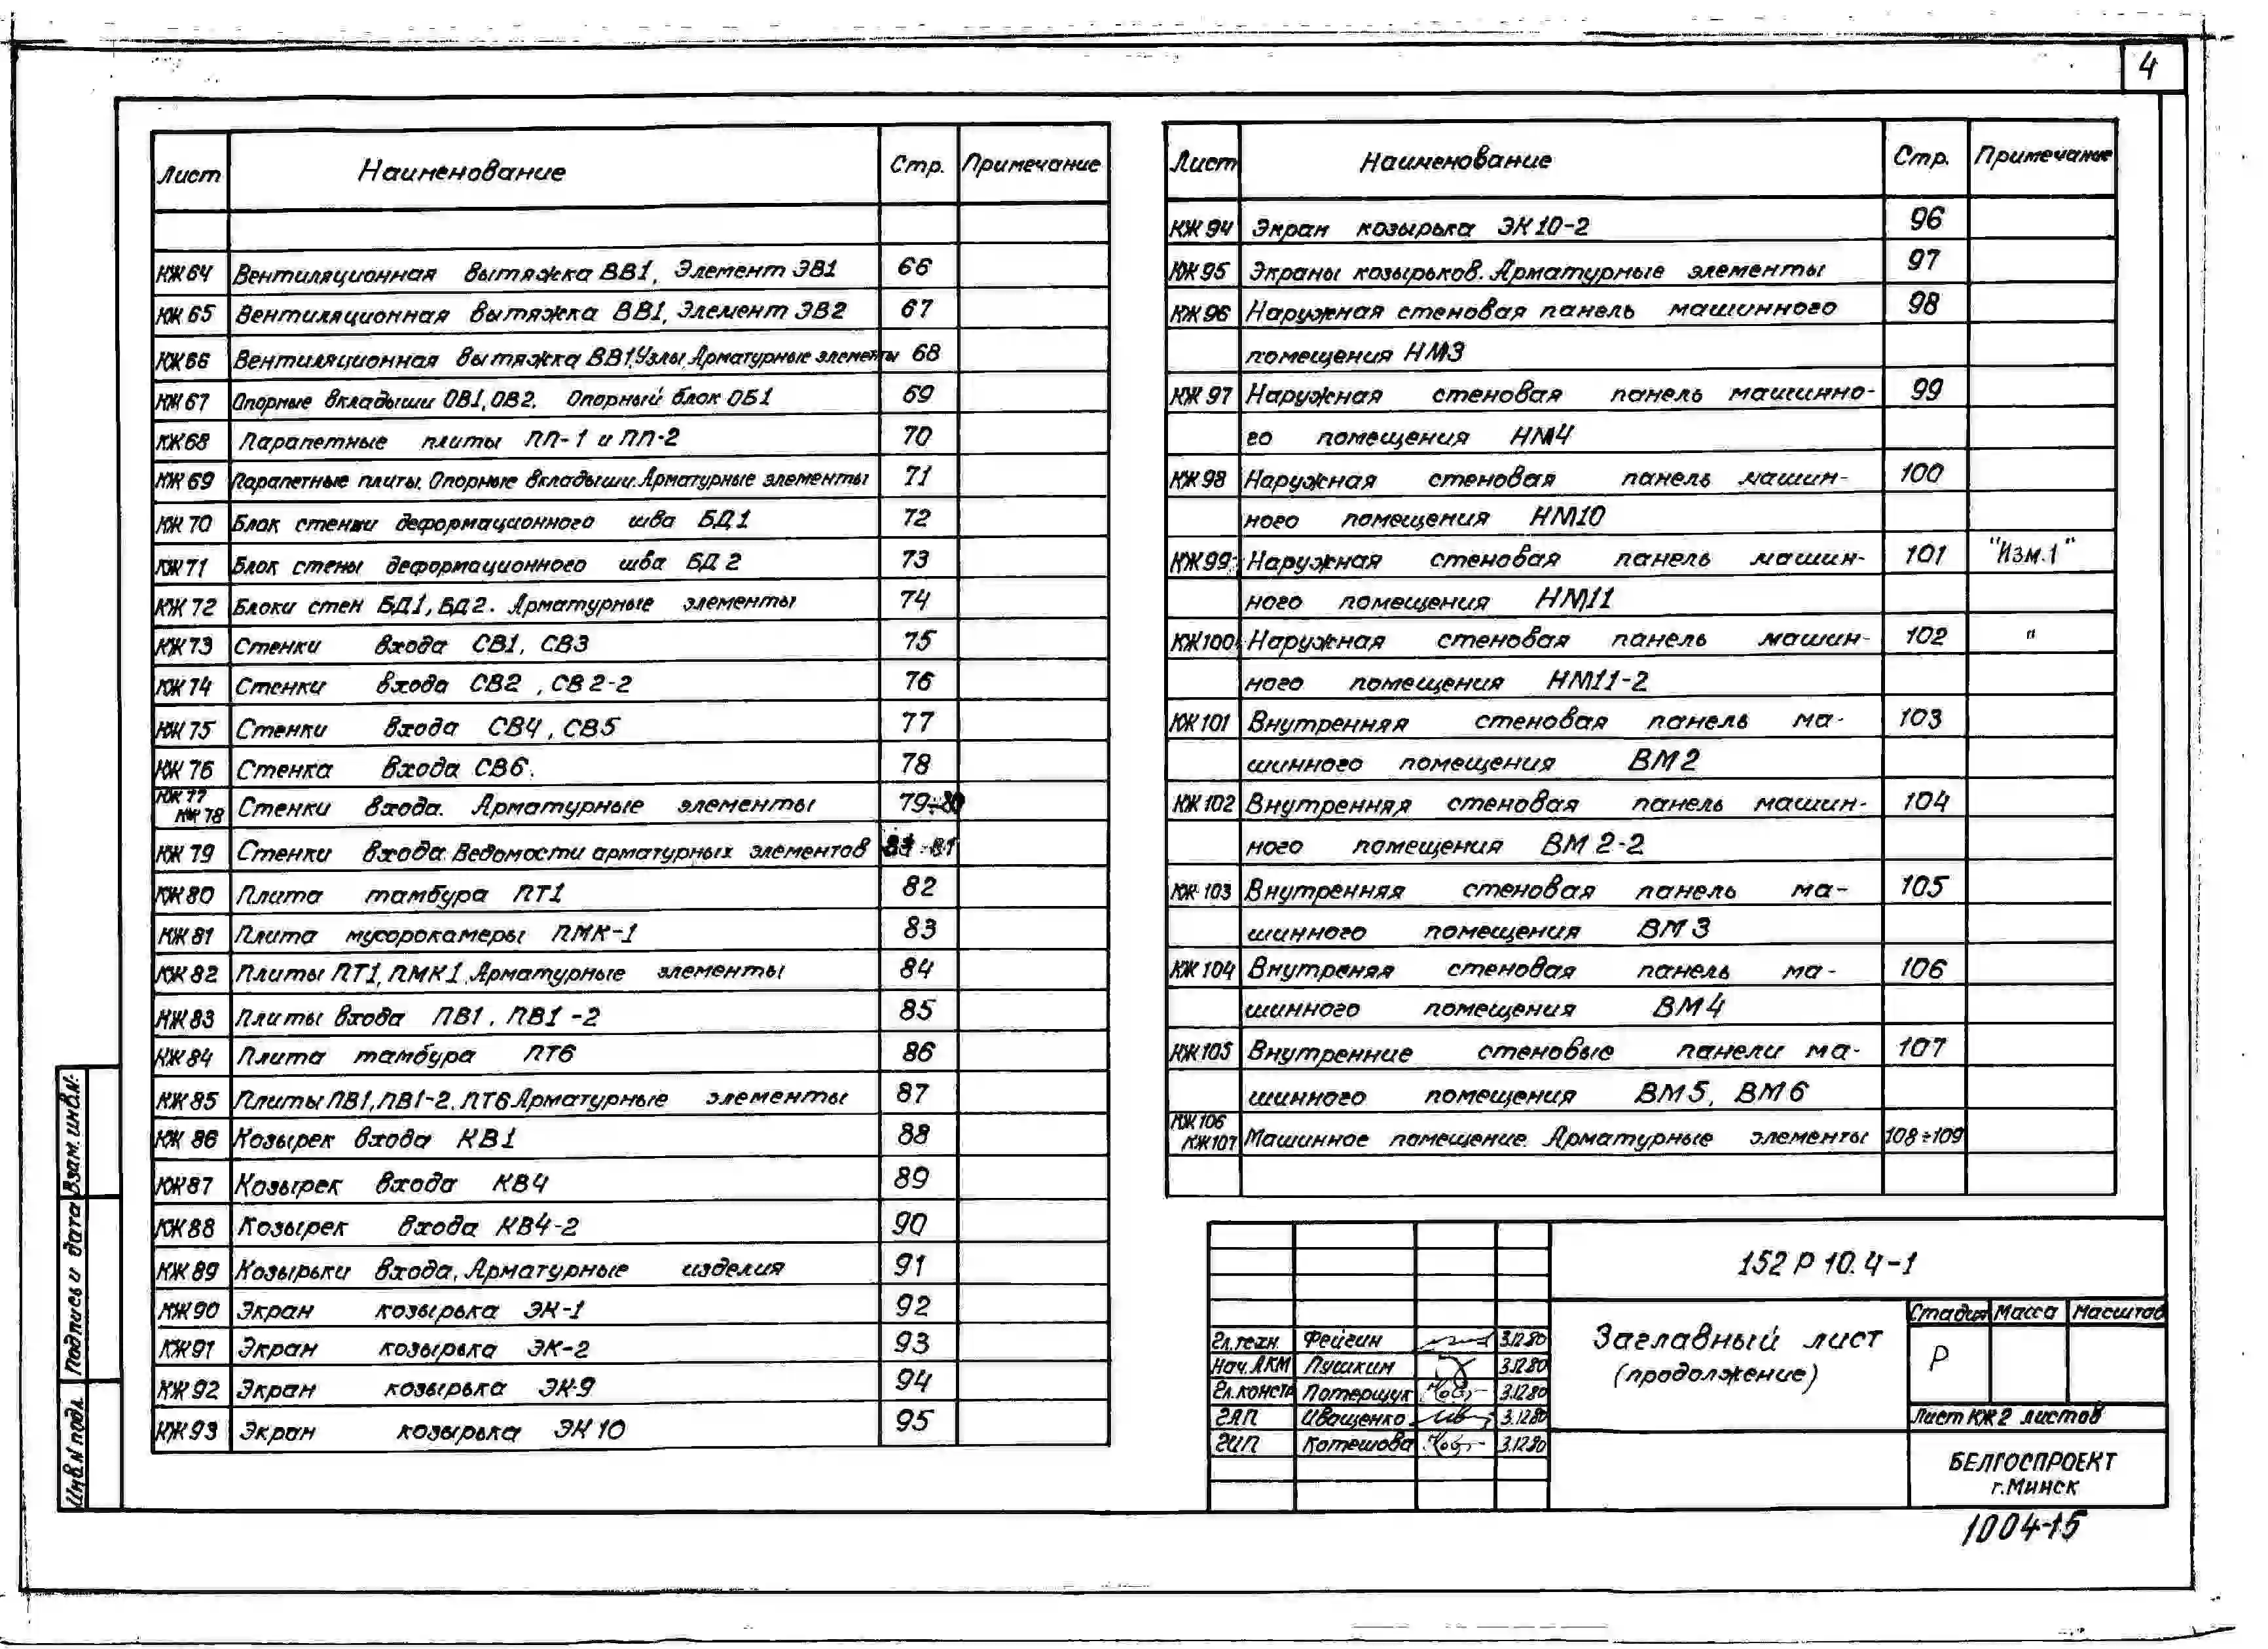 4
Лист Наименование Стр. Примечание
КЖ64 Вентиляционная вытяжка ВВ1, Элемент ЭВ1 66
КЖ65 Вентиляционная вытяжка ВВ1, Элемент ЭВ2 67
КЖ66 Вентиляционная вытяжка ВВ1, Узлы, Арматурные элементы 68
КЖ67 Опорные вкладыши ОВ1, ОВ2. Опорный блок ОБ1 69
КЖ68 Парапетные плиты ПП-1 и ПП-2 70
КЖ69 Парапетные плиты. Опорные вкладыши. Арматурные элементы 71
КЖ70 Блок стенки деформационного шва БД1 72
КЖ71 Блок стены деформационного шва БД2 73
КЖ72 Блоки стен БД1, БД2. Арматурные элементы 74
КЖ73 Стенки входа СВ1, СВ3 75
КЖ74 Стенки входа СВ2, СВ2-2 76
КЖ75 Стенки входа СВ4, СВ5 77
КЖ76 Стенка входа СВ6. 78
КЖ77
КЖ78 Стенки входа. Арматурные элементы 79÷80
КЖ79 Стенки входа. Ведомости арматурных элементов 81
КЖ80 Плита тамбура ПТ1 82
КЖ81 Плита мусорокамеры ПМК-1 83
КЖ82 Плиты ПТ1, ПМК1. Арматурные элементы 84
КЖ83 Плиты входа ПВ1, ПВ1-2 85
КЖ84 Плита тамбура ПТ6 86
КЖ85 Плиты ПВ1, ПВ1-2, ПТ6 Арматурные элементы 87
КЖ86 Козырек входа КВ1 88
КЖ87 Козырек входа КВ4 89
КЖ88 Козырек входа КВ4-2 90
КЖ89 Козырьки входа. Арматурные изделия 91
КЖ90 Экран козырька ЭК-1 92
КЖ91 Экран козырька ЭК-2 93
КЖ92 Экран козырька ЭК-9 94
КЖ93 Экран козырька ЭК10 95
Лист Наименование Стр. Примечание
КЖ94 Экран козырька ЭК10-2 96
КЖ95 Экраны козырьков. Арматурные элементы 97
КЖ96 Наружная стеновая панель машинного 98
помещения НМ3
КЖ97 Наружная стеновая панель машинно- 99
го помещения НМ4
КЖ98 Наружная стеновая панель машин- 100
ного помещения НМ10
КЖ99 Наружная стеновая панель машин- 101 "Изм.1"
ного помещения НМ11
КЖ100 Наружная стеновая панель машин- 102 "
ного помещения НМ11-2
КЖ101 Внутренняя стеновая панель ма- 103
шинного помещения ВМ2
КЖ102 Внутренняя стеновая панель машин- 104
ного помещения ВМ2-2
КЖ103 Внутренняя стеновая панель ма- 105
шинного помещения ВМ3
КЖ104 Внутреняя стеновая панель ма- 106
шинного помещения ВМ4
КЖ105 Внутренние стеновые панели ма- 107
шинного помещения ВМ5, ВМ6
КЖ106
КЖ107 Машинное помещение. Арматурные элементы 108÷109
152 Р 10.4-1
Заглавный лист
(продолжение)
Стадия Масса Масштаб
Р
Лист КЖ2 листов
БЕЛГОСПРОЕКТ
г.Минск
Гл.техн. Фейгин 3.12.80
Нач.АКМ Пушкин 3.12.80
Гл.констр Потерщук 3.12.80
ГАП Иващенко 3.12.80
ГИП Котешова 3.12.80
1004-15
Взам.инв.N
Подпись и дата
Инв.N подл.